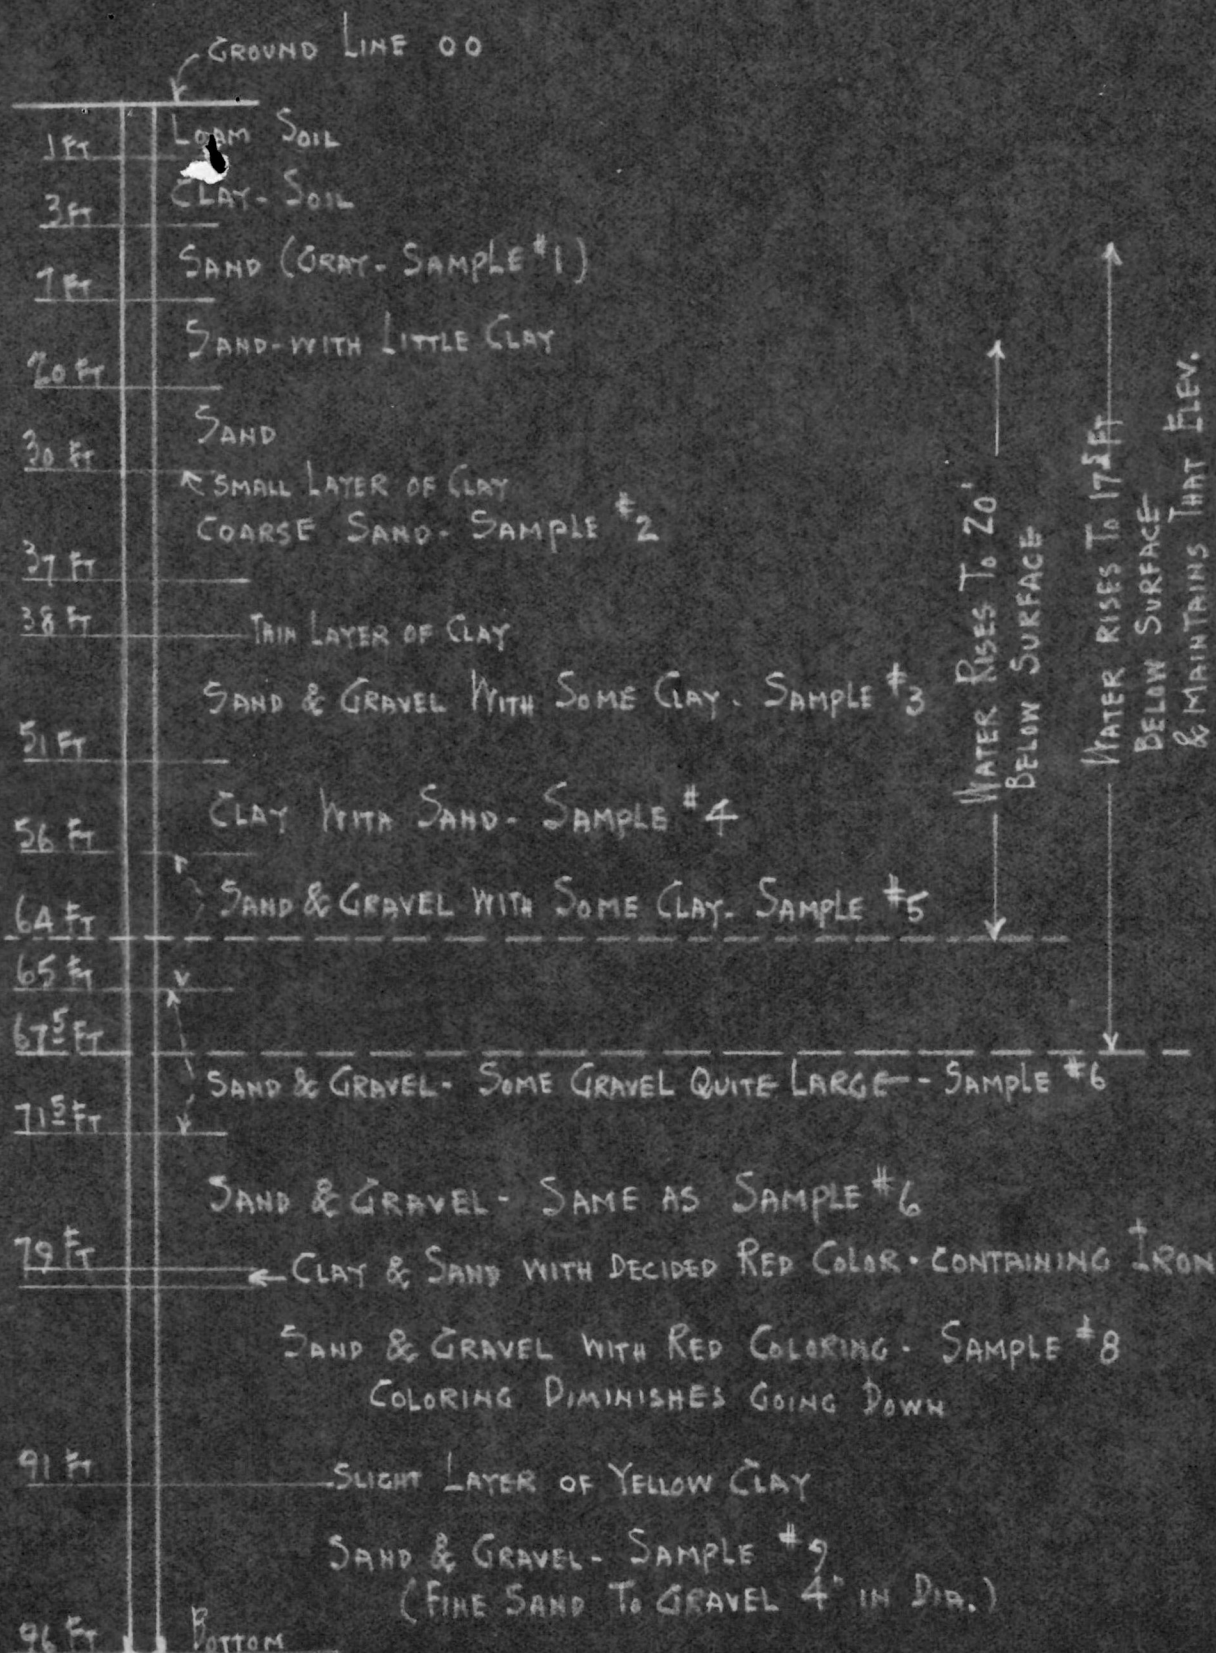 GROUND LINE 00
LOAM SOIL
1 FT
CLAY-SOIL
3 FT
SAND (GRAY-SAMPLE #1)
7 FT
SAND-WITH LITTLE CLAY
20 FT
SAND
30 FT
SMALL LAYER OF CLAY
COARSE SAND-SAMPLE #2
37 FT
38 FT
THIN LAYER OF CLAY
SAND & GRAVEL WITH SOME CLAY. SAMPLE #3
51 FT
CLAY WITH SAND-SAMPLE #4
56 FT
SAND & GRAVEL WITH SOME CLAY-SAMPLE #5
64 FT
65 FT
67⁵ FT
SAND & GRAVEL-SOME GRAVEL QUITE LARGE-SAMPLE #6
71⁵ FT
SAND & GRAVEL-SAME AS SAMPLE #6
79 FT
CLAY & SAND WITH DECIDED RED COLOR. CONTAINING IRON
SAND & GRAVEL WITH RED COLORING. SAMPLE #8
COLORING DIMINISHES GOING DOWN
91 FT
SLIGHT LAYER OF YELLOW CLAY
SAND & GRAVEL-SAMPLE #9
(FINE SAND TO GRAVEL 4" IN DIA.)
96 FT
BOTTOM
WATER RISES TO 20'
BELOW SURFACE
WATER RISES TO 17⁵ FT
BELOW SURFACE
& MAINTAINS THAT ELEV.